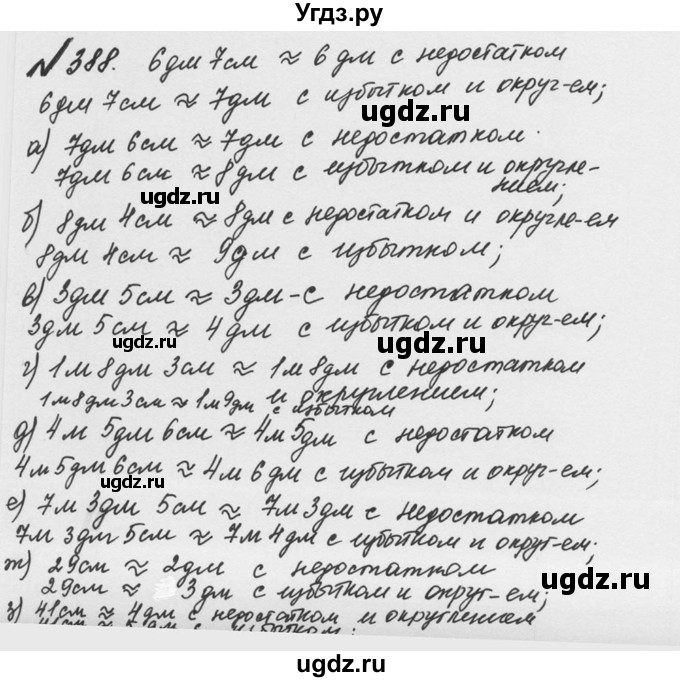 Угдз.ру
№388. 6дм 7см ≈ 6 дм с недостатком
6дм 7см ≈ 7дм с избытком и округ-ем;
ugdz.ru
а) 7дм 6см ≈ 7дм с недостатком.
7дм 6см ≈ 8дм с избытком и округле-
нием;
ugdz.ru
б) 8дм 4см ≈ 8дм с недостатком и округле-ем
8дм 4см ≈ 9дм с избытком;
в) 3дм 5см ≈ 3дм-с недостатком
3дм 5см ≈ 4дм с избытком и округ-ем;
ugdz.ru
г) 1м 8дм 3см ≈ 1м 8дм с недостатком
и округлением;
1м 8дм 3см ≈ 1м 9дм с избытком
ugdz.ru
д) 4м 5дм 6см ≈ 4м 5дм с недостатком
4м 5дм 6см ≈ 4м 6дм с избытком и округ-ем;
ugdz.ru
е) 7м 3дм 5см ≈ 7м 3дм с недостатком
7м 3дм 5см ≈ 7м 4дм с избытком и округ-ем;
ugdz.ru
ж) 29см ≈ 2дм с недостатком
29см ≈ 3дм с избытком и округ-ем;
ugdz.ru
з) 41см ≈ 4дм с недостатком и округлением
41см ≈ 5дм с избытком;
ugdz.ru